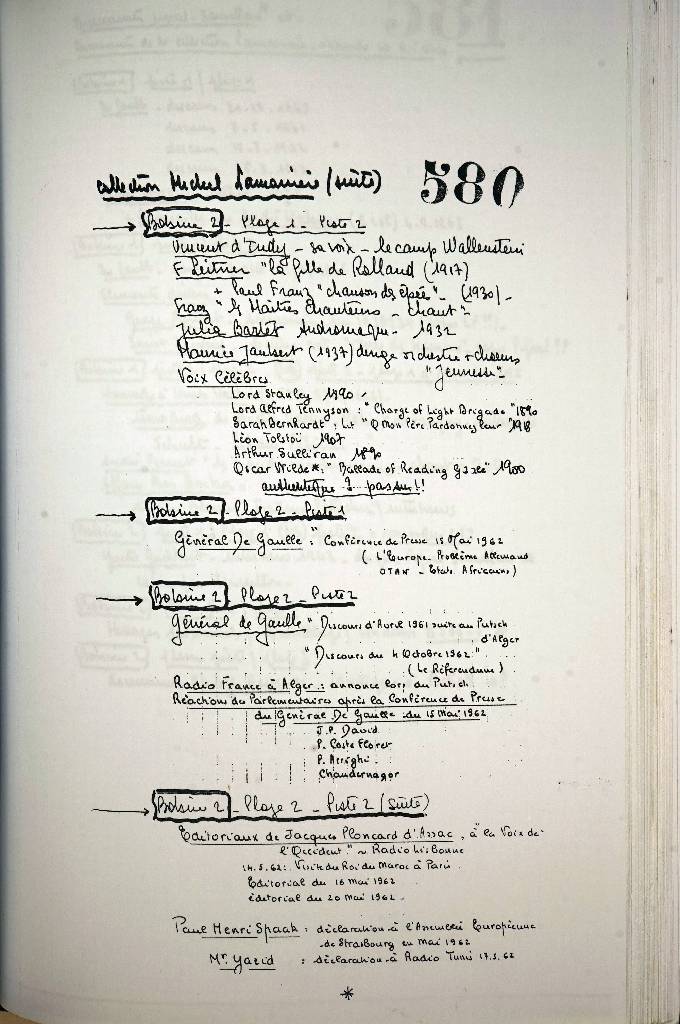 collection Michel Lamanière (suite) 580
→ Bobine 2 - Plage 1 - Piste 2
Vincent d'Indy - sa voix - le camp Wallenstein
F Leitner "la fille de Rolland (1917)
+ Paul Franz "chanson des épée" - (1930) -
Franz "les Maîtres Chanteurs - chant"
Julia Bartet Andromaque - 1932
Maurice Jaubert (1937) dirige orchestre + chœurs
"Jeunesse"
Voix Célèbres
Lord Stanley 1890
Lord Alfred Tennyson : "Charge of Light Brigade" 1890
Sarah Bernhardt : lit "O Mon Père Pardonnez leur" 1918
Léon Tolstoï 1907
Arthur Sullivan 1890
Oscar Wilde* : "Ballade of Reading Gaole" 1900
authentique ? pas sur!!
→ Bobine 2 - Plage 2 - Piste 1
Général De Gaulle : "Conférence de Presse 15 Mai 1962
(L'Europe - Problème Allemand
OTAN - Etats Africains)
→ Bobine 2 - Plage 2 - Piste 2
Général de Gaulle "Discours d'Avril 1961 suite au Putsch
d'Alger
"Discours du 4 Octobre 1962"
(Le Référendum)
Radio France à Alger : annonce lors du Putsch
Réactions des Parlementaires après la Conférence de Presse
du Général De Gaulle du 15 Mai 1962
J.P. David
P. Coste Floret
P. Arrighi
Chandernagor
→ Bobine 2 - Plage 2 - Piste 2 (suite)
Editoriaux de Jacques Ploncard d'Assac, à "la Voix de
l'Occident" ~ Radio Lisbonne
14.5.62 : Visite du Roi du Maroc à Paris
Editorial du 16 mai 1962
éditorial du 20 mai 1962
Paul Henri Spaak : déclaration à l'Assemblée Européenne
de Strasbourg en Mai 1962
Mr. Yazid : déclaration à Radio Tunis 17.5.62
*